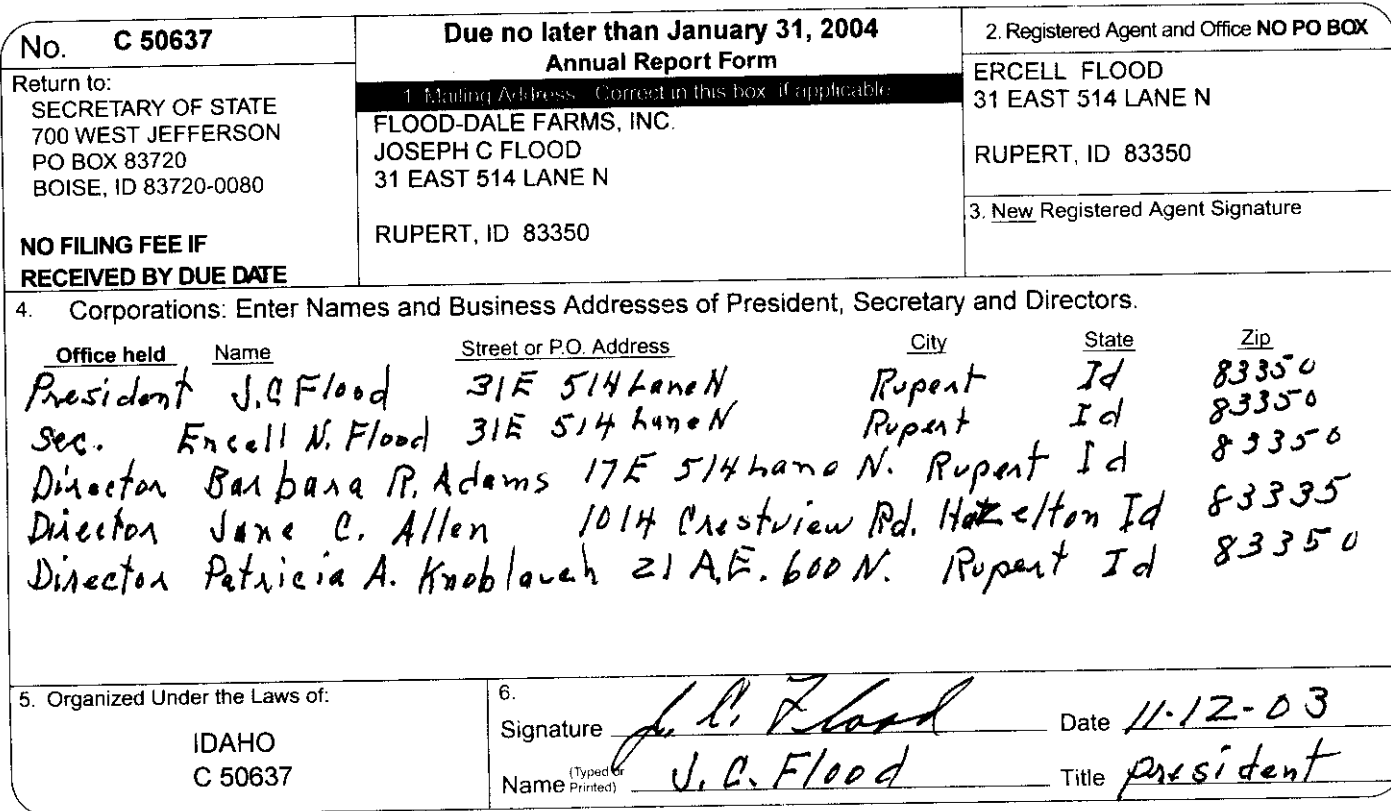 No. C 50637
Return to:
SECRETARY OF STATE
700 WEST JEFFERSON
PO BOX 83720
BOISE, ID 83720-0080
NO FILING FEE IF
RECEIVED BY DUE DATE
Due no later than January 31, 2004
Annual Report Form
1. Mailing Address - Correct in this box, if applicable
FLOOD-DALE FARMS, INC.
JOSEPH C FLOOD
31 EAST 514 LANE N
RUPERT, ID 83350
2. Registered Agent and Office NO PO BOX
ERCELL FLOOD
31 EAST 514 LANE N
RUPERT, ID 83350
3. New Registered Agent Signature
4. Corporations: Enter Names and Business Addresses of President, Secretary and Directors.
Office held Name Street or P.O. Address City State Zip
President J.C Flood 31E 514 Lane N Rupert Id 83350
Sec. Ercell N. Flood 31E 514 Lane N Rupert Id 83350
Director Barbara R. Adams 17E 514 Lane N. Rupert Id 83350
Director Jane C. Allen 1014 Crestview Rd. Hazelton Id 83335
Director Patricia A. Knoblauch 21 A.E. 600 N. Rupert Id 83350
5. Organized Under the Laws of:
IDAHO
C 50637
6.
Signature J. C. Flood Date 11-12-03
Name (Typed or Printed) J. C. Flood Title president